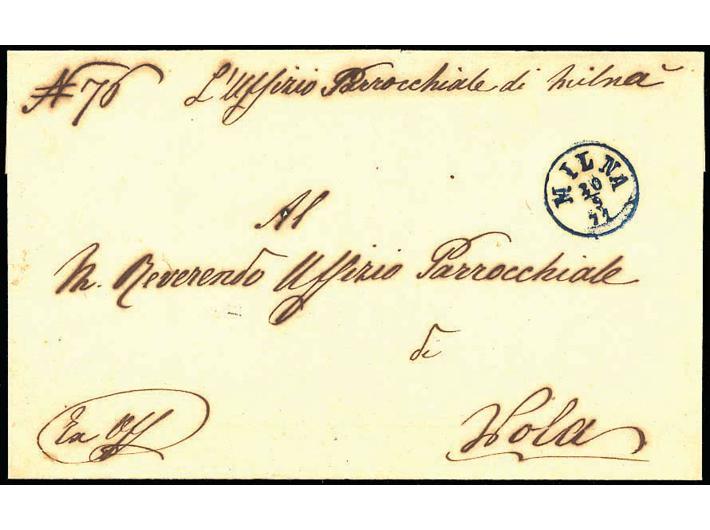 N 76 L'Uffizio Parrocchiale di Milnà
MILNA
20
9
77
Al
M. Reverendo Uffizio Parrocchiale
di
Ex Off